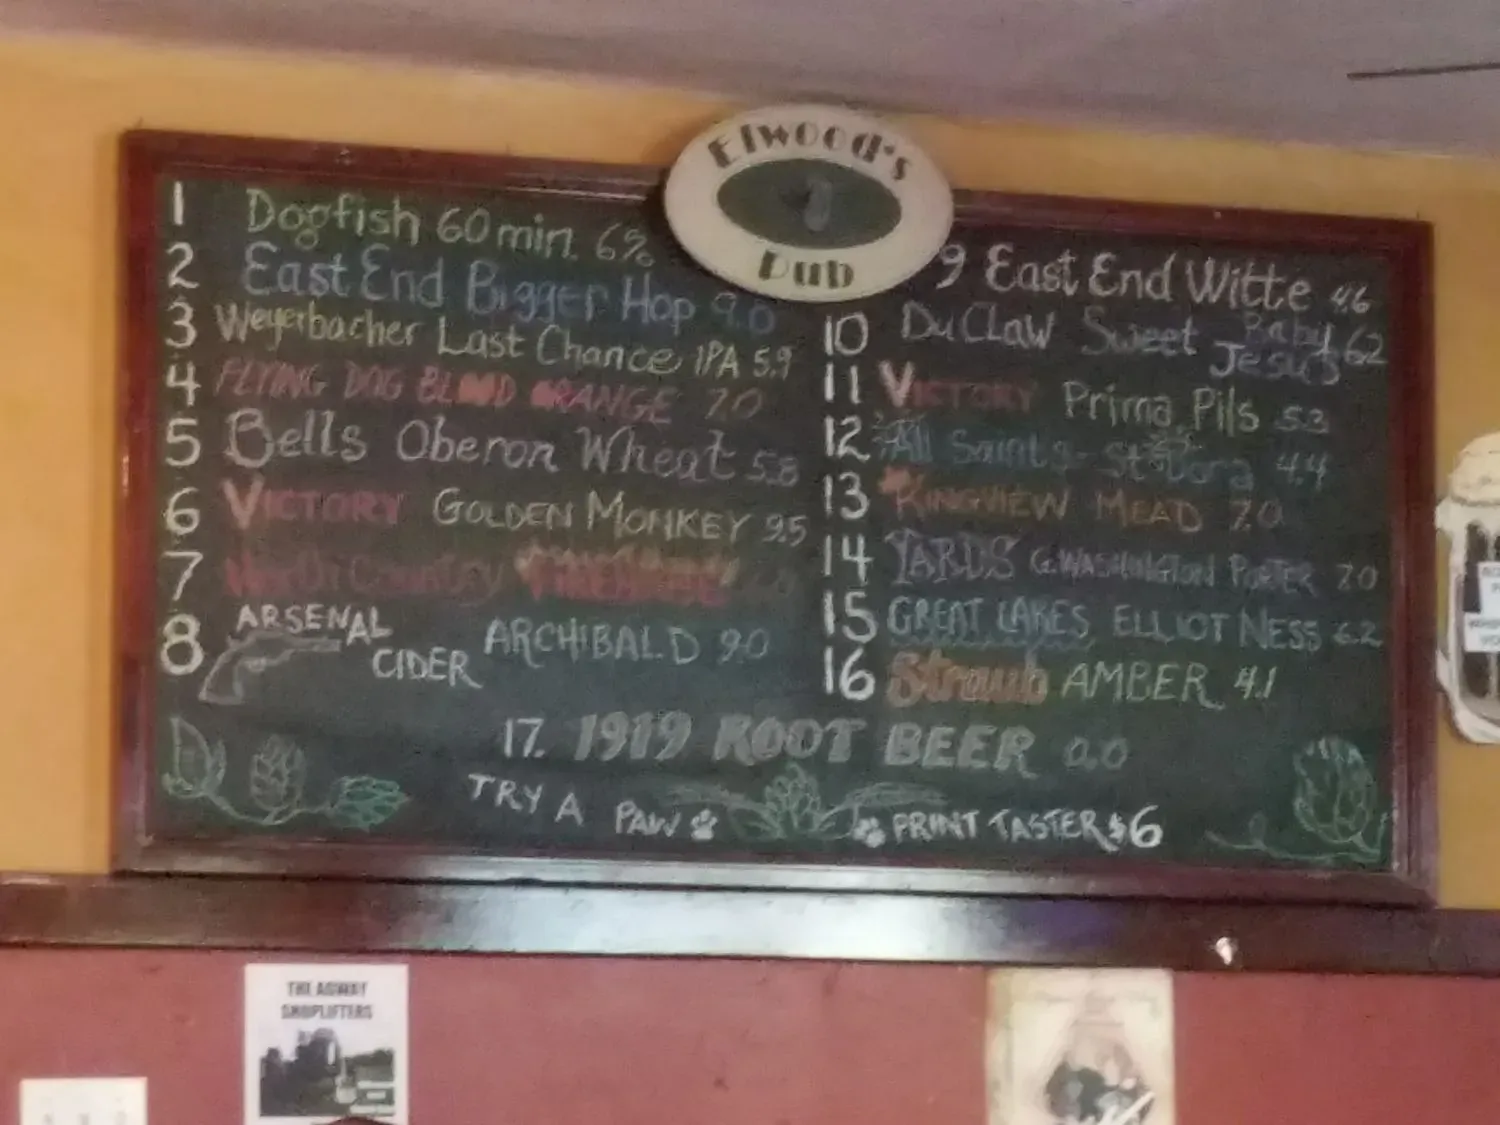 Elwood's
Pub
1 Dogfish 60 min. 6%
2 East End Bigger Hop 9.0
3 Weyerbacher Last Chance IPA 5.9
4 FLYING DOG BLOOD ORANGE 7.0
5 Bells Oberon Wheat 5.8
6 VICTORY GOLDEN MONKEY 9.5
7 North Country
8 ARSENAL CIDER ARCHIBALD 9.0
9 East End Witte 4.6
10 DuClaw Sweet Baby Jesus 6.2
11 VICTORY Prima Pils 5.3
12 All Saints 4.4
13 KINGVIEW MEAD 7.0
14 YARDS G. WASHINGTON PORTER 7.0
15 GREAT LAKES ELLIOT NESS 6.2
16 Straub AMBER 4.1
17. 1919 ROOT BEER 0.0
TRY A PAW PRINT TASTER $6
THE AGWAY
SHOPLIFTERS